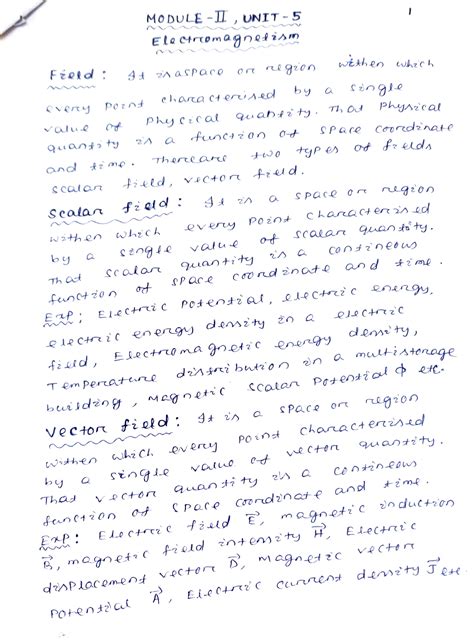 MODULE-II, UNIT-5
1
Electromagnetism
Field : It is a space or region within which
every point characterised by a single
value of physcical quantity. That physical
quantity is a function of space coordinate
and time. There are two types of fields
scalar field, vector field.
Scalar field : It is a space or region
within which every point characterised
by a single value of scalar quantity.
That scalar quantity is a contineous
function of space coordinate and time.
Exp: Electric Potential, electric energy,
electric energy density in a electric
field, Electromagnetic energy density,
Temperature distribution in a multistorage
building, magnetic scalar potential ϕ etc.
Vector field : It is a space or region
within which every point characterised
by a single value of vector quantity.
That vector quantity is a contineous
function of space coordinate and time.
Exp: Electric field E⃗, magnetic induction
B⃗, magnetic field intensity H⃗, Electric
displacement vector D⃗, Magnetic vector
potential A⃗, Electric current density J⃗ etc.